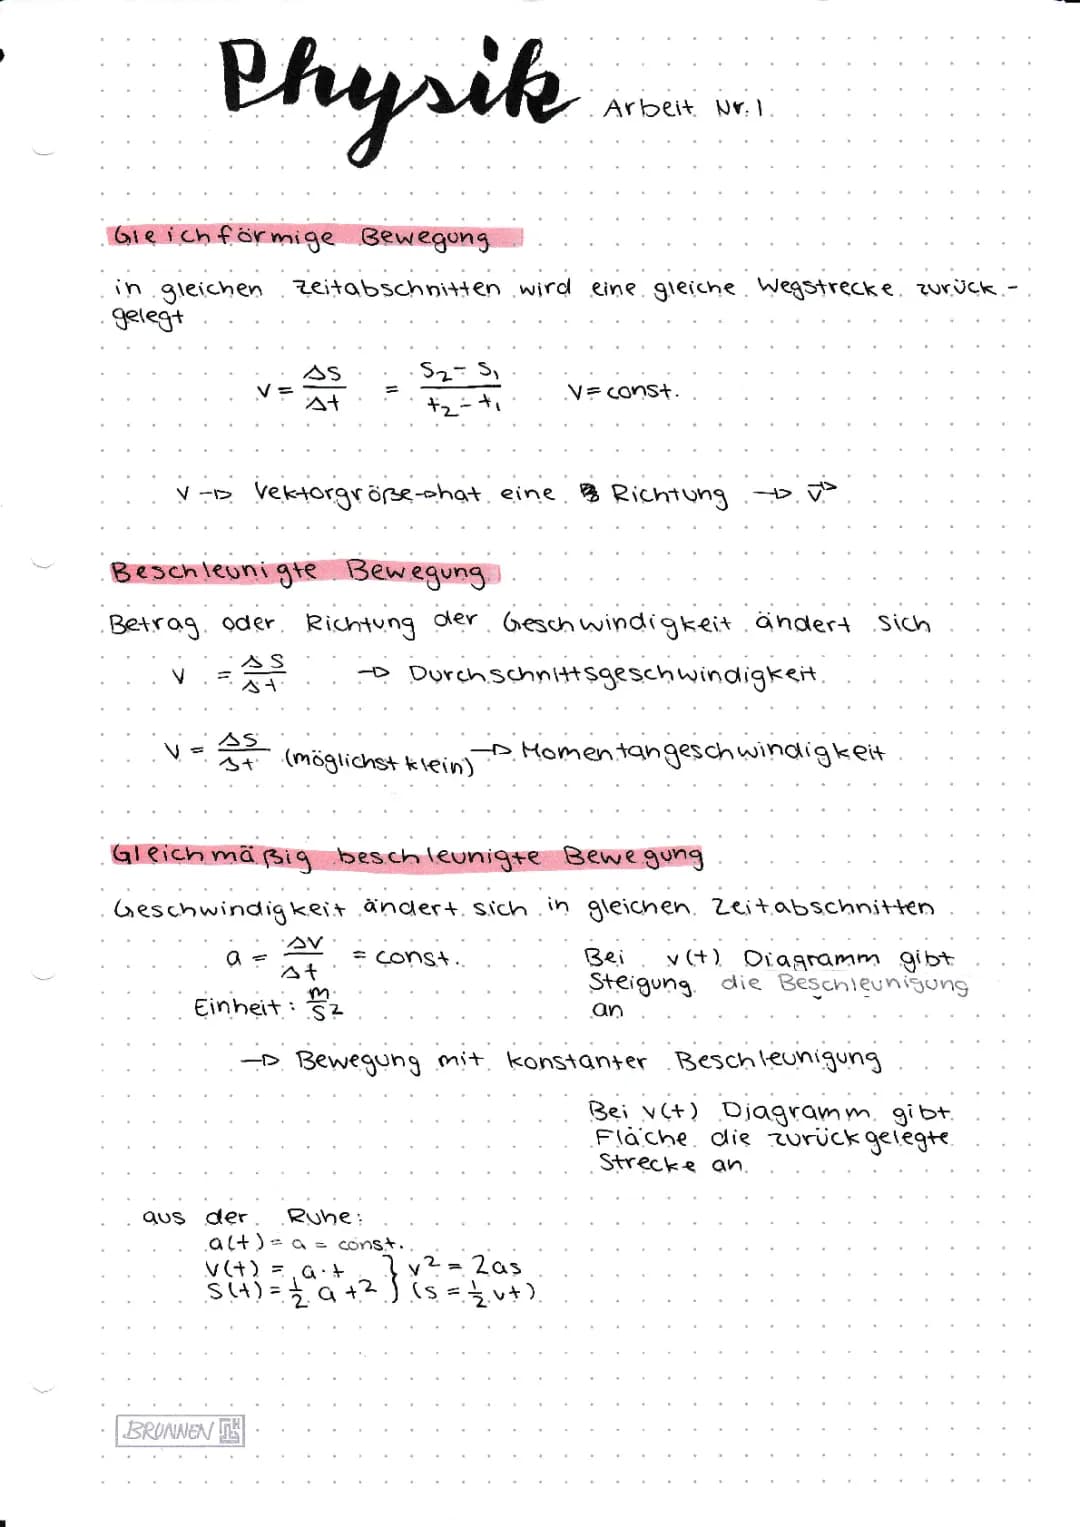 Physik Arbeit Nr. 1
Gleichförmige Bewegung
in gleichen Zeitabschnitten wird eine gleiche Wegstrecke zurück-
gelegt
v = Δs/Δt = s₂-s₁/t₂-t₁ v=const.
v → Vektorgröße → hat eine Richtung → v⃗
Beschleunigte Bewegung
Betrag oder Richtung der Geschwindigkeit ändert sich
v = Δs/Δt → Durchschnittsgeschwindigkeit
v = Δs/Δt (möglichst klein) → Momentangeschwindigkeit
Gleichmäßig beschleunigte Bewegung
Geschwindigkeit ändert sich in gleichen Zeitabschnitten
a = Δv/Δt = const.
Einheit: m/s²
Bei v(t) Diagramm gibt
Steigung die Beschleunigung
an
→ Bewegung mit konstanter Beschleunigung
Bei v(t) Diagramm gibt
Fläche die zurückgelegte
Strecke an
aus der Ruhe:
a(t) = a = const.
v(t) = a·t } v² = 2as
s(t) = ½ a t² } (s = ½ vt)
BRUNNEN